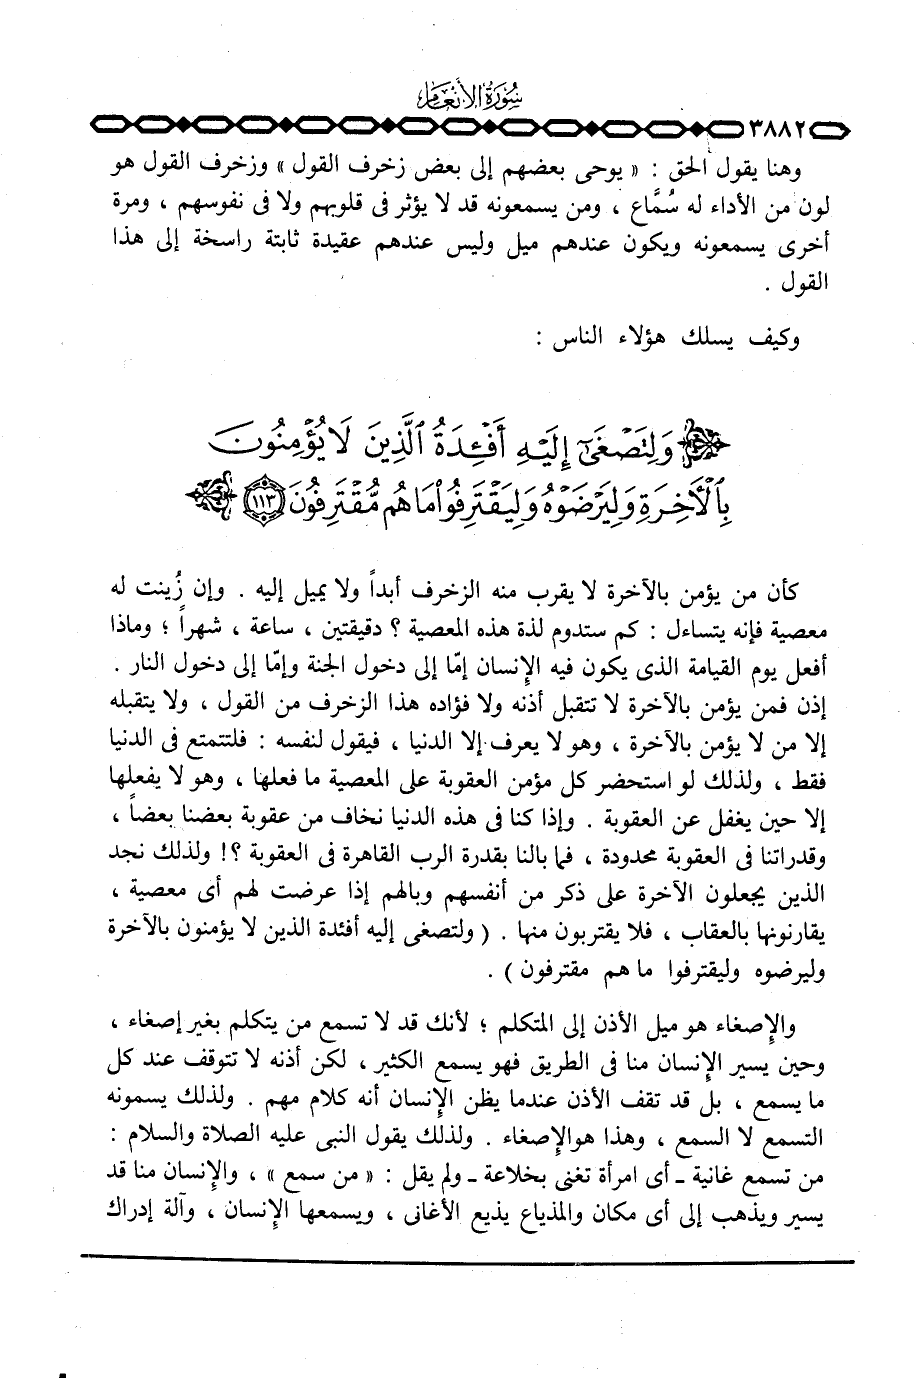 سُورَةُ الأَنْعَام
٣٨٨٢
وهنا يقول الحق : « يوحى بعضهم إلى بعض زخرف القول » وزخرف القول هو
لون من الأداء له سُمَّاع ، ومن يسمعونه قد لا يؤثر فى قلوبهم ولا فى نفوسهم ، ومرة
أخرى يسمعونه ويكون عندهم ميل وليس عندهم عقيدة ثابتة راسخة إلى هذا
القول .
وكيف يسلك هؤلاء الناس :
وَلِتَصْغَىٰٓ إِلَيْهِ أَفْـِٔدَةُ ٱلَّذِينَ لَا يُؤْمِنُونَ
بِٱلْأَخِرَةِ وَلِيَرْضَوْهُ وَلِيَقْتَرِفُوا۟ مَا هُم مُّقْتَرِفُونَ ١١٣
كأن من يؤمن بالآخرة لا يقرب منه الزخرف أبداً ولا يميل إليه . وإن زُينت له
معصية فإنه يتساءل : كم ستدوم لذة هذه المعصية ؟ دقيقتين ، ساعة ، شهراً ؛ وماذا
أفعل يوم القيامة الذى يكون فيه الإنسان إمّا إلى دخول الجنة وإمّا إلى دخول النار .
إذن فمن يؤمن بالآخرة لا تتقبل أذنه ولا فؤاده هذا الزخرف من القول ، ولا يتقبله
إلا من لا يؤمن بالآخرة ، وهو لا يعرف إلا الدنيا ، فيقول لنفسه : فلتتمتع فى الدنيا
فقط ، ولذلك لو استحضر كل مؤمن العقوبة على المعصية ما فعلها ، وهو لا يفعلها
إلا حين يغفل عن العقوبة . وإذا كنا فى هذه الدنيا نخاف من عقوبة بعضنا بعضاً ،
وقدراتنا فى العقوبة محدودة ، فما بالنا بقدرة الرب القاهرة فى العقوبة ؟! ولذلك نجد
الذين يجعلون الآخرة على ذكر من أنفسهم وبالهم إذا عرضت لهم أى معصية ،
يقارنونها بالعقاب ، فلا يقتربون منها . ( ولتصغى إليه أفئدة الذين لا يؤمنون بالآخرة
وليرضوه وليقترفوا ما هم مقترفون ) .
والإصغاء هو ميل الأذن إلى المتكلم ؛ لأنك قد لا تسمع من يتكلم بغير إصغاء ،
وحين يسير الإنسان منا فى الطريق فهو يسمع الكثير ، لكن أذنه لا تتوقف عند كل
ما يسمع ، بل قد تقف الأذن عندما يظن الإنسان أنه كلام مهم . ولذلك يسمونه
التسمع لا السمع ، وهذا هوالإصغاء . ولذلك يقول النبى عليه الصلاة والسلام :
من تسمع غانية ـ أى امرأة تغنى بخلاعة ـ ولم يقل : « من سمع » ، والإنسان منا قد
يسير ويذهب إلى أى مكان والمذياع يذيع الأغانى ، ويسمعها الإنسان ، وآلة إدراك